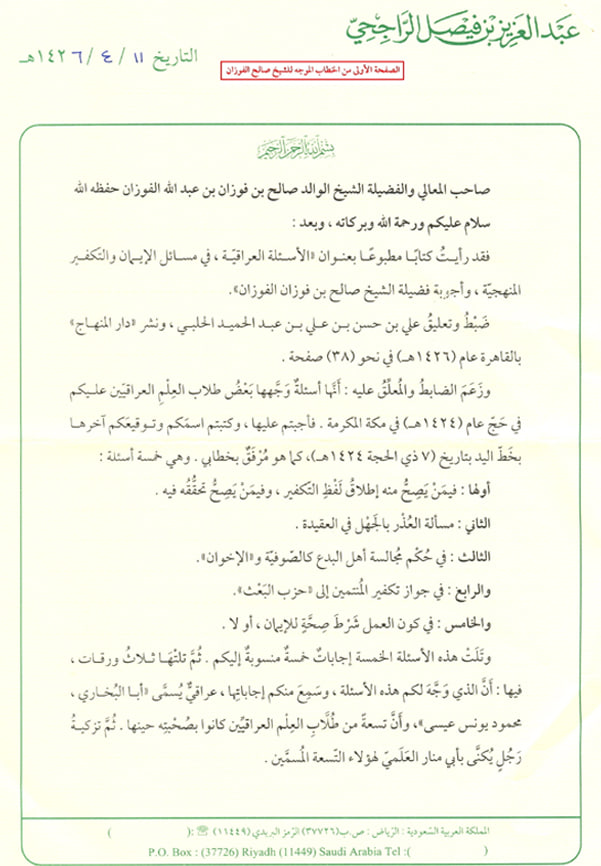 عبد العزيز بن فيصل الراجحي
التاريخ ١١ / ٤ / ١٤٢٦هـ
الصفحة الأولى من الخطاب الموجه للشيخ صالح الفوزان
بسم الله الرحمن الرحيم
صاحب المعالي والفضيلة الشيخ الوالد صالح بن فوزان بن عبد الله الفوزان حفظه الله
سلام عليكم ورحمة الله وبركاته ، وبعد :
فقد رأيتُ كتابًا مطبوعًا بعنوان «الأسئلة العراقيّة ، في مسائل الإيمان والتكفير
المنهجيّة ، وأجوبة فضيلة الشيخ صالح بن فوزان الفوزان».
ضَبْطُ وتعليقُ علي بن حسن بن علي بن عبد الحميد الحلبي ، ونشر «دار المنهاج»
بالقاهرة عام (١٤٢٦هـ) في نحو (٣٨) صفحة .
وزَعَمَ الضابطُ والمُعلِّقُ عليه : أنَّها أسئلةٌ وَجَّهها بَعْضُ طلاب العِلْمِ العراقيّين عليكم
في حَجّ عام (١٤٢٤هـ) في مكة المكرمة . فأجبتم عليها ، وكتبتم اسمَكم وتوقيعَكم آخرها
بخَطّ اليد بتاريخ (٧ ذي الحجة ١٤٢٤هـ)، كما هو مُرْفَقٌ بخطابي . وهي خمسة أسئلة :
أولها : فيمَنْ يَصِحُّ منه إطلاقُ لَفْظِ التكفير ، وفيمَنْ يَصِحُّ تحقُّقُه فيه .
الثاني : مسألة العُذْر بالجَهْل في العقيدة .
الثالث : في حُكْم مُجالسة أهل البدع كالصّوفيّة و«الإخوان».
والرابع : في جواز تكفير المُنتمين إلى «حزب البَعْث».
والخامس : في كون العمل شَرْطَ صِحَّةٍ للإيمان ، أو لا .
وتَلَتْ هذه الأسئلةَ الخمسة إجاباتٌ خمسةٌ منسوبةٌ إليكم . ثُمَّ تلتْهَا ثلاثُ ورقات ،
فيها : أنَّ الذي وَجَّهَ لكم هذه الأسئلة ، وسَمِعَ منكم إجاباتِها ، عراقيٌّ يُسمَّى «أبا البُخاري ،
محمود يونس عيسى»، وأنَّ تسعةً من طُلَّابِ العِلْم العراقيِّين كانوا بصُحْبتِه حينها . ثُمَّ تزكيةُ
رَجُلٍ يُكنَّى بأبي منار العَلَميّ لهؤلاء التّسعة المُسمَّين .
المملكة العربية السعودية : الرياض : ص.ب(٣٧٧٢٦) الرمز البريدي (١١٤٤٩) ☎ :( )
P.O. Box : (37726) Riyadh (11449) Saudi Arabia Tel :( )